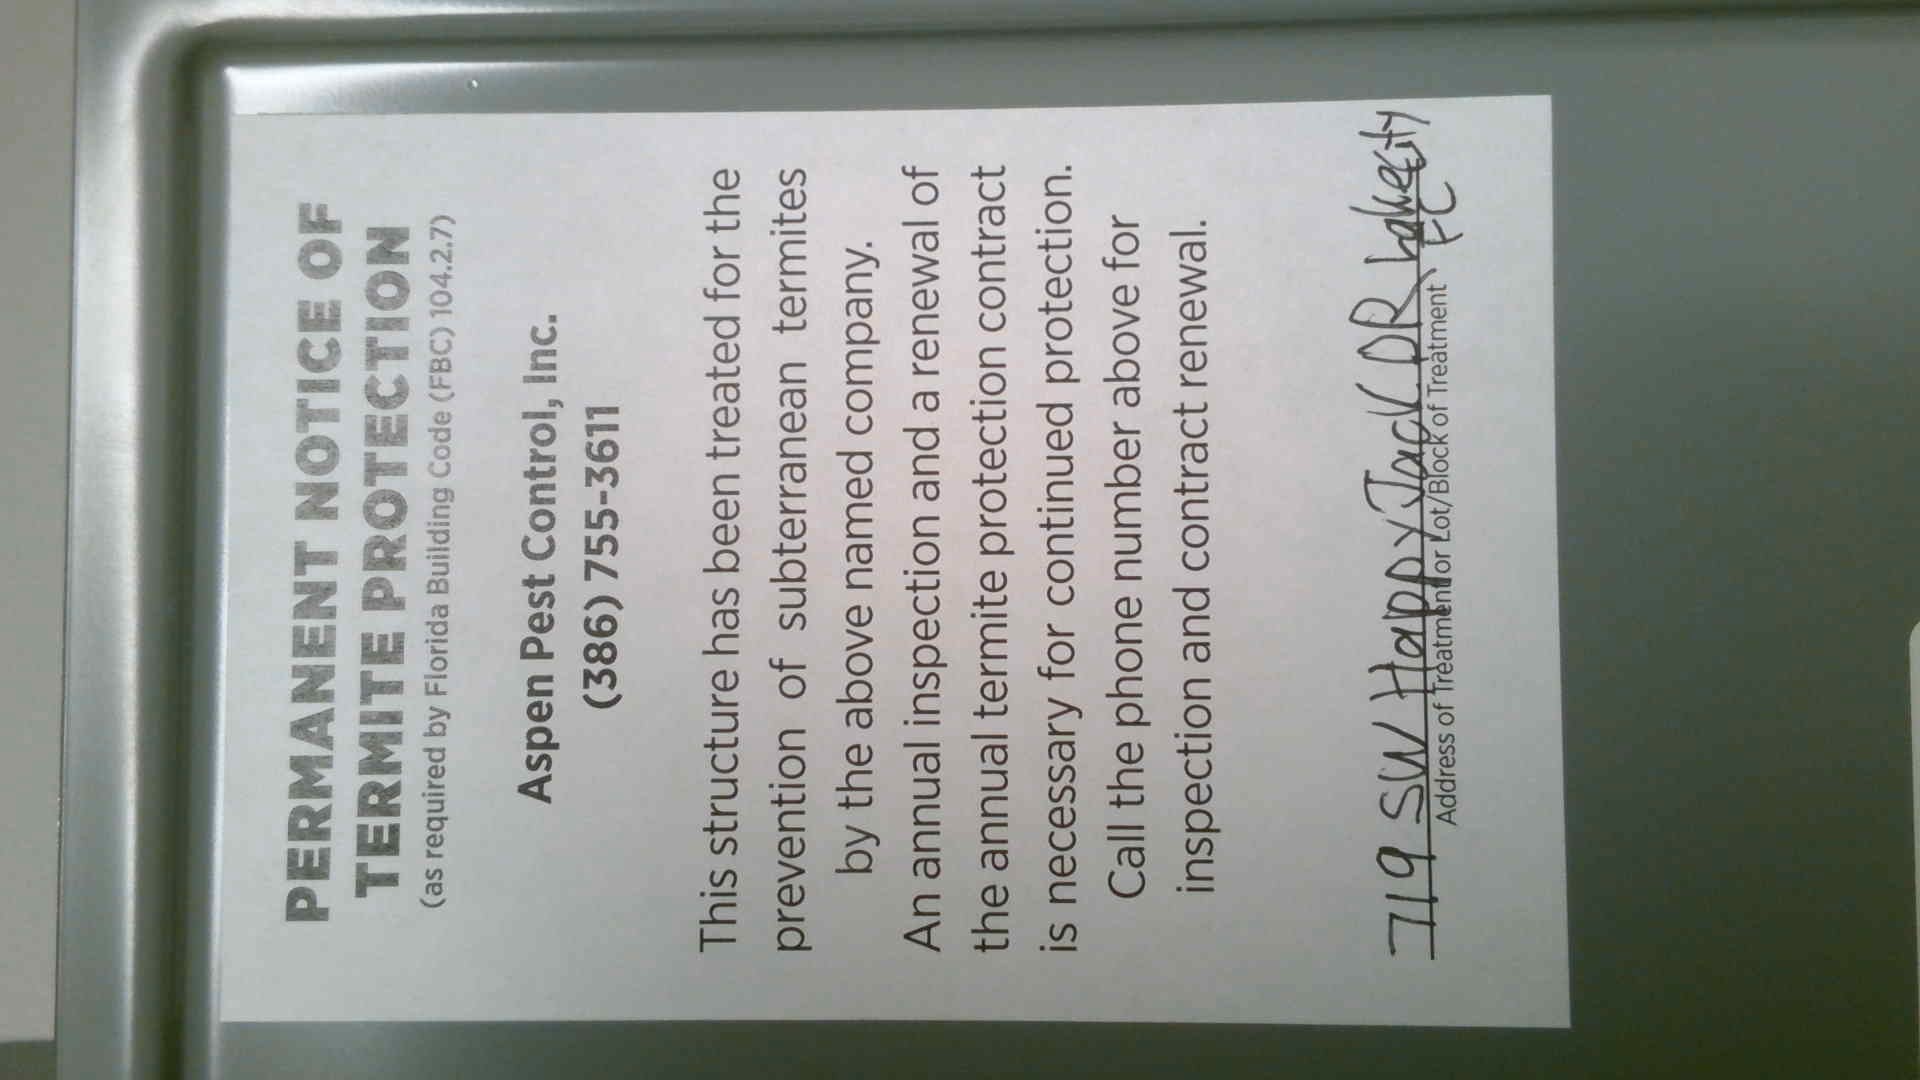 PERMANENT NOTICE OF
TERMITE PROTECTION
(as required by Florida Building Code (FBC) 104.2.7)
Aspen Pest Control, Inc.
(386) 755-3611
This structure has been treated for the
prevention of subterranean termites
by the above named company.
An annual inspection and a renewal of
the annual termite protection contract
is necessary for continued protection.
Call the phone number above for
inspection and contract renewal.
719 SW Happy Jack DR Lake City
FL
Address of Treatment or Lot/Block of Treatment